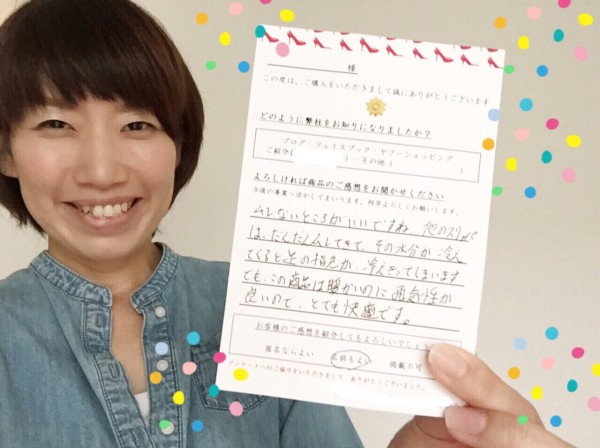 様
この度は、ご購入をいただきまして誠にありがとうございます
どのように弊社をお知りになりましたか？
ブログ・フェイスブック・ヤフーショッピング
ご紹介（　　　）・その他（　　　　　）
よろしければ商品のご感想をお聞かせください
今後の事業へ活かしてまいります。何卒よろしくお願いします。
ムレないところがいいですね 他のスリッパ
は、だんだんムレてきて、その水分が、冷え
てくると足の指先が、冷えきってしまいます
でも、この商品は暖かいのに 通気性が
良いので、とても快適です。
お客様のご感想を紹介してもよろしいでしょ
匿名ならよい 名前もよい 掲載不可
アンケートへのご協力をいただきまして、ありがとうございました。